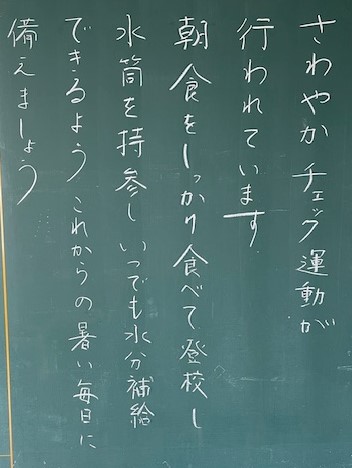 さわやかチェック運動が
行われています
朝食をしっかり食べて登校し
水筒を持参しいつでも水分補給
できるよう これからの暑い毎日に
備えましょう